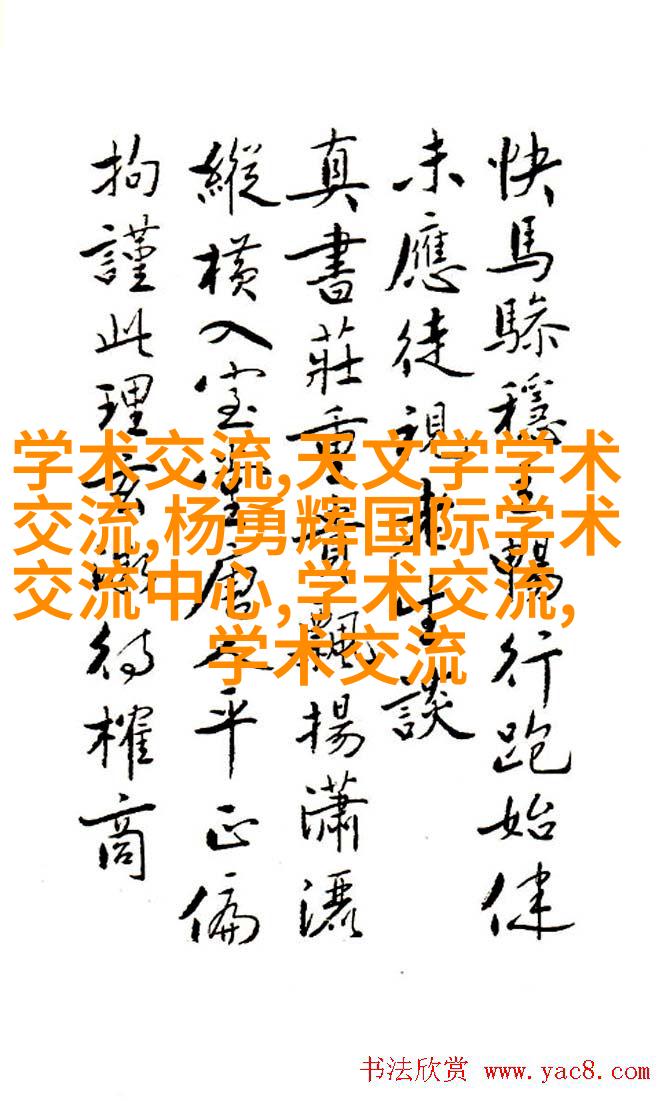 快馬穩行跑始健
未應徒視談
真書莊重飄揚瀟灑
縱橫入室唐人平正偏
拘謹此理待榷商
学术交流,天文学学术
交流,杨勇辉国际学术
交流中心,学术交流,
学术交流
书法欣赏 www.yac8.com